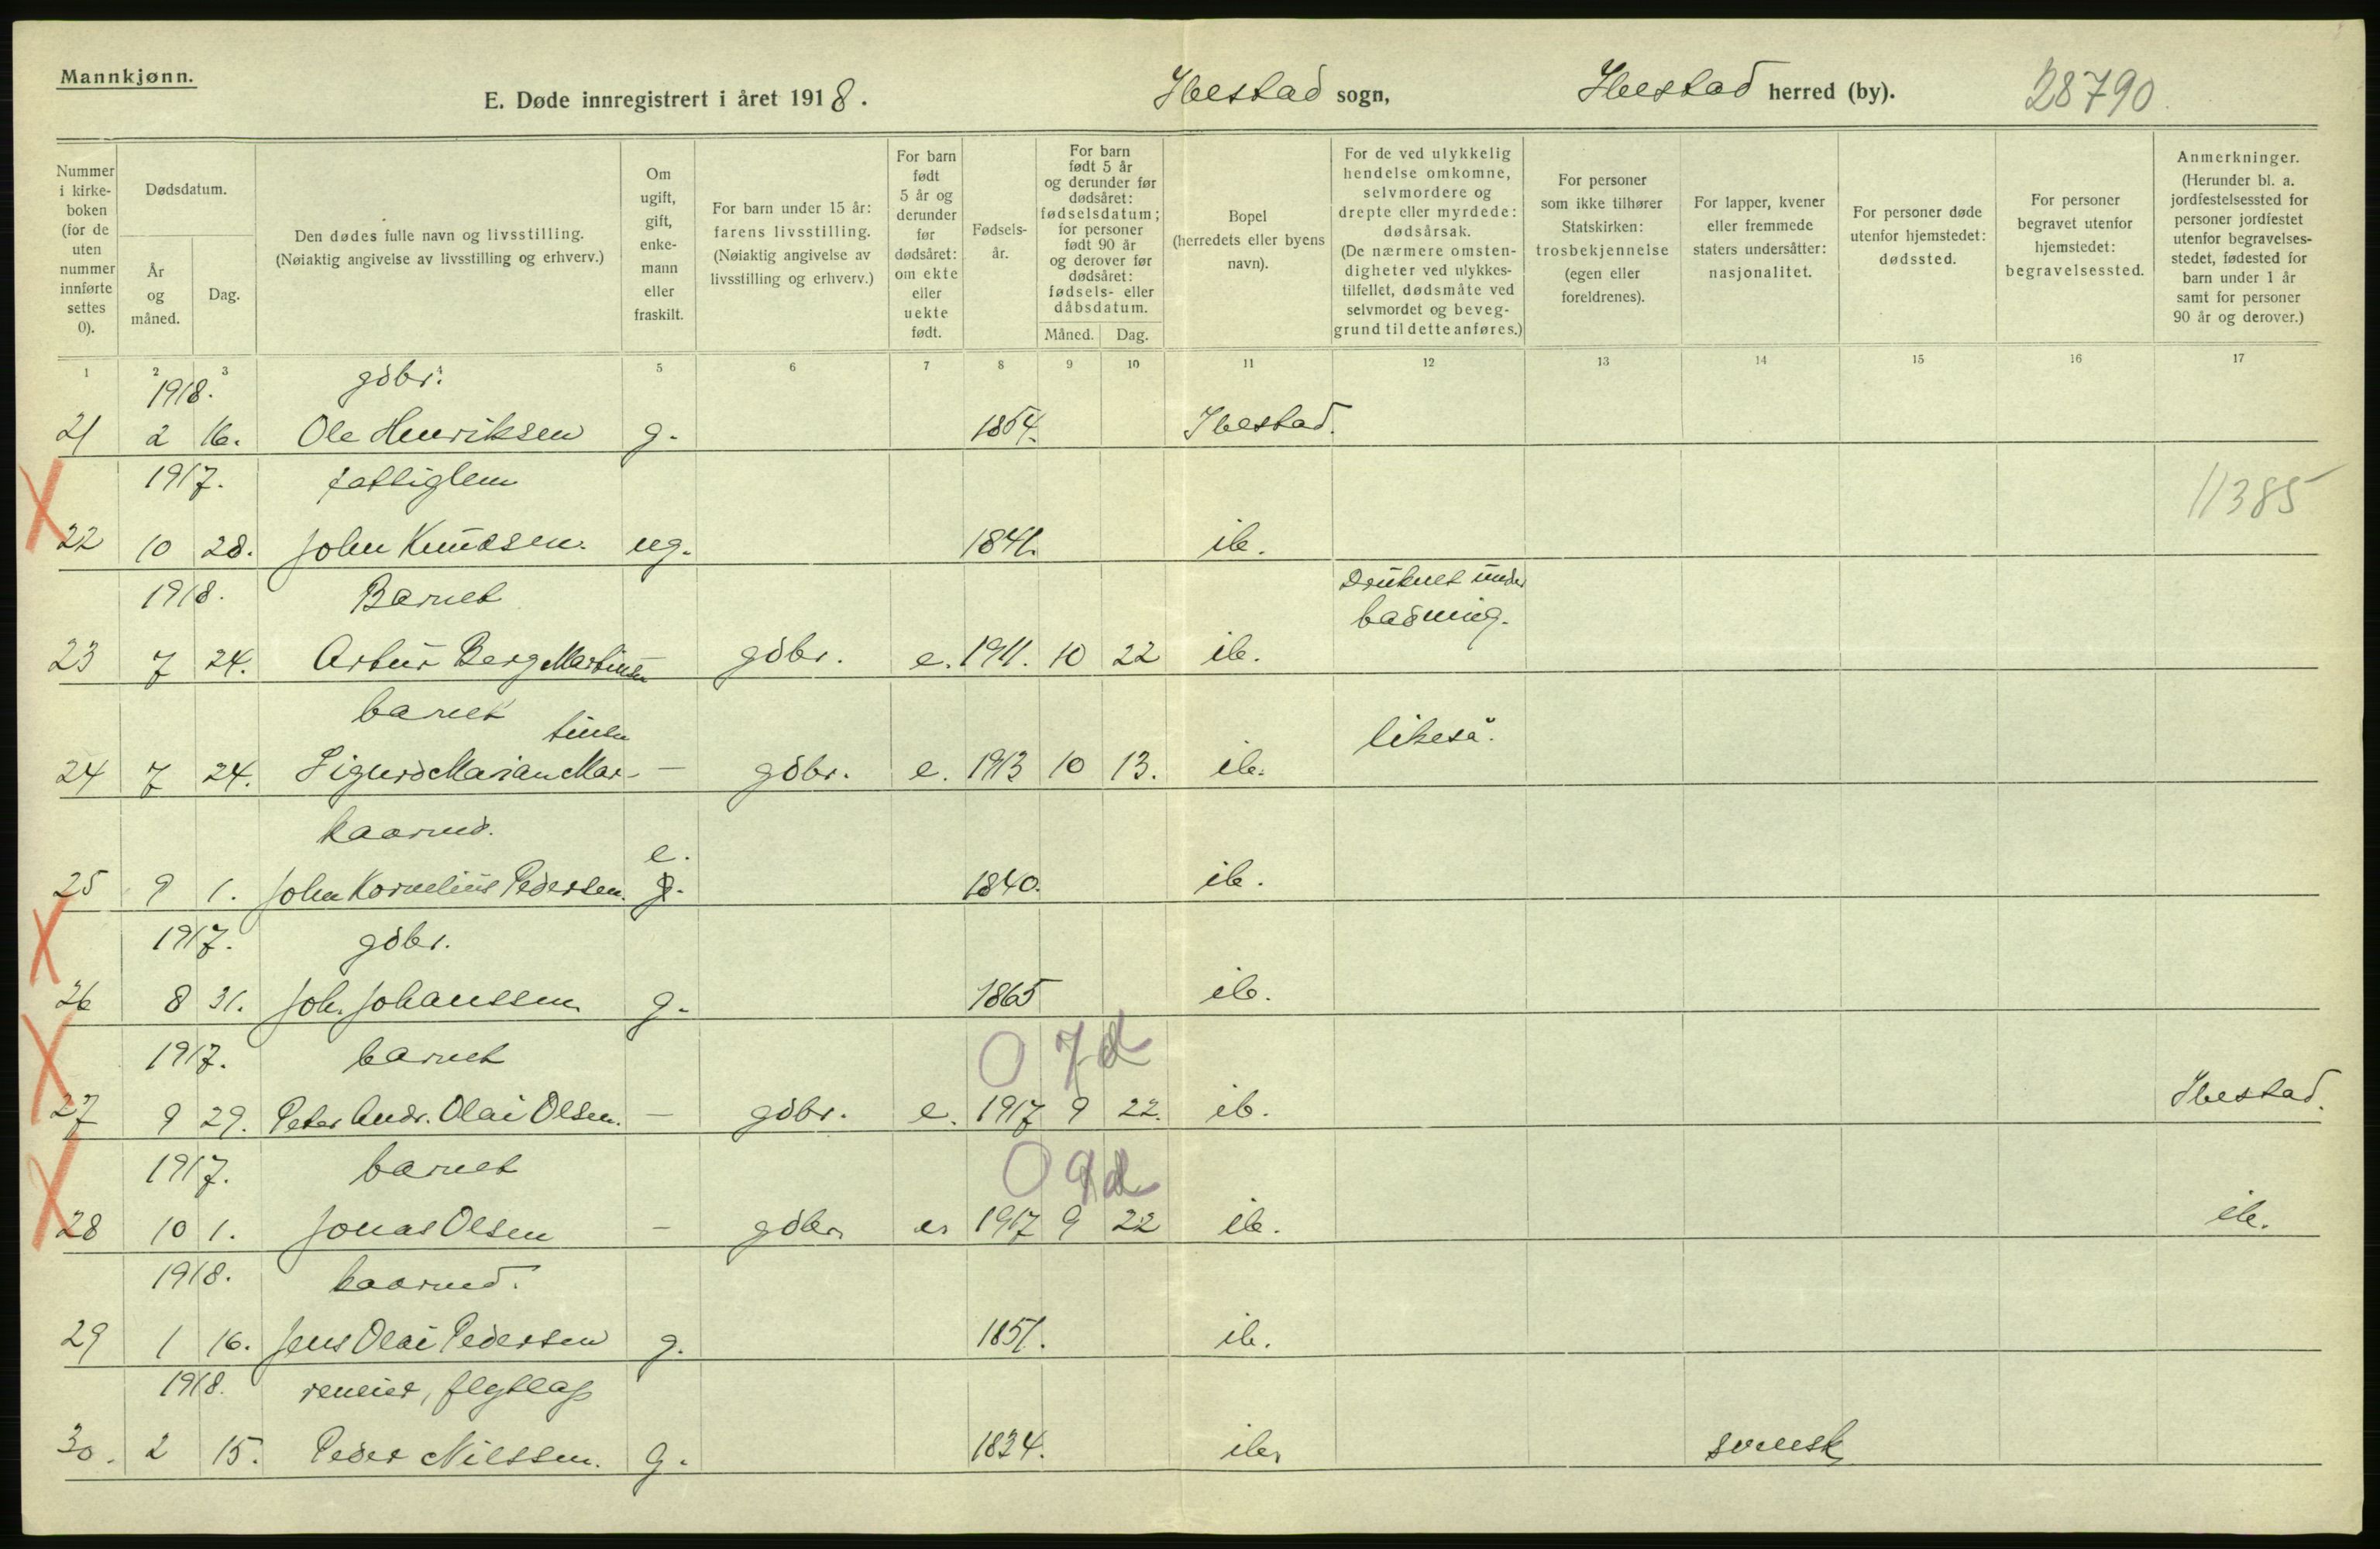 Mannkjønn.
E. Døde innregistrert i året 1918. Ibestad sogn, Ibestad herred (by). 28790
Nummer i kirke-boken (for de uten nummer innførte settes 0).
Dødsdatum.
År og måned.
Dag.
Den dødes fulle navn og livsstilling. (Nøiaktig angivelse av livsstilling og erhverv.)
Om ugift, gift, enke-mann eller fraskilt.
For barn under 15 år: farens livsstilling. (Nøiaktig angivelse av livsstilling og erhverv.)
For barn født 5 år og derunder før dødsåret: om ekte eller uekte født.
Fødsels-år.
For barn født 5 år og derunder før dødsåret: fødselsdatum; for personer født 90 år og derover før dødsåret: fødsels- eller dåbsdatum.
Måned. Dag.
Bopel (herredets eller byens navn).
For de ved ulykkelig hendelse omkomne, selvmordere og drepte eller myrdede: dødsårsak. (De nærmere omsten-digheter ved ulykkes-tilfellet, dødsmåte ved selvmordet og beveg-grund til dette anføres.)
For personer som ikke tilhører Statskirken: trosbekjennelse (egen eller foreldrenes).
For lapper, kvener eller fremmede staters undersåtter: nasjonalitet.
For personer døde utenfor hjemstedet: dødssted.
For personer begravet utenfor hjemstedet: begravelsessted.
Anmerkninger. (Herunder bl. a. jordfestelsessted for personer jordfestet utenfor begravelses-stedet, fødested for barn under 1 år samt for personer 90 år og derover.)
1 2 3 4 5 6 7 8 9 10 11 12 13 14 15 16 17
1918. gdbr.
21 2 16. Ole Henriksen g. 1854. Ibestad.
1917. fattiglem 11385
22 10 28. John Knudsen. ug. 1841. ib.
1918. Barnet Druknet under
badning.
23 7 24. Artur Berg Martinsen gdbr. e. 1911. 10 22 ib.
barnet
tinsen likeså.
24 7 24. Sigurd Marian Mar- — gdbr. e. 1913 10 13. ib.
kaarmd.
e.
25 9 1. John Kornelius Pedersen. g. 1840. ib.
1917. gdbr.
26 8 31. Joh. Johanssen g. 1865 ib.
1917. barnet 0 7d
27 9 29. Peter Andr. Olai Olsen. — gdbr. e. 1917 9 22. ib. Ibestad.
1917. barnet 0 9d
28 10 1. Jonas Olsen — gdbr. e. 1917 9 22 ib. ib.
1918. kaarmd.
29 1 16. Jens Olai Pedersen g. 1851. ib.
1918. reneier, flytlap
30. 2 15. Peder Nilssen. g. 1834. ib. svensk